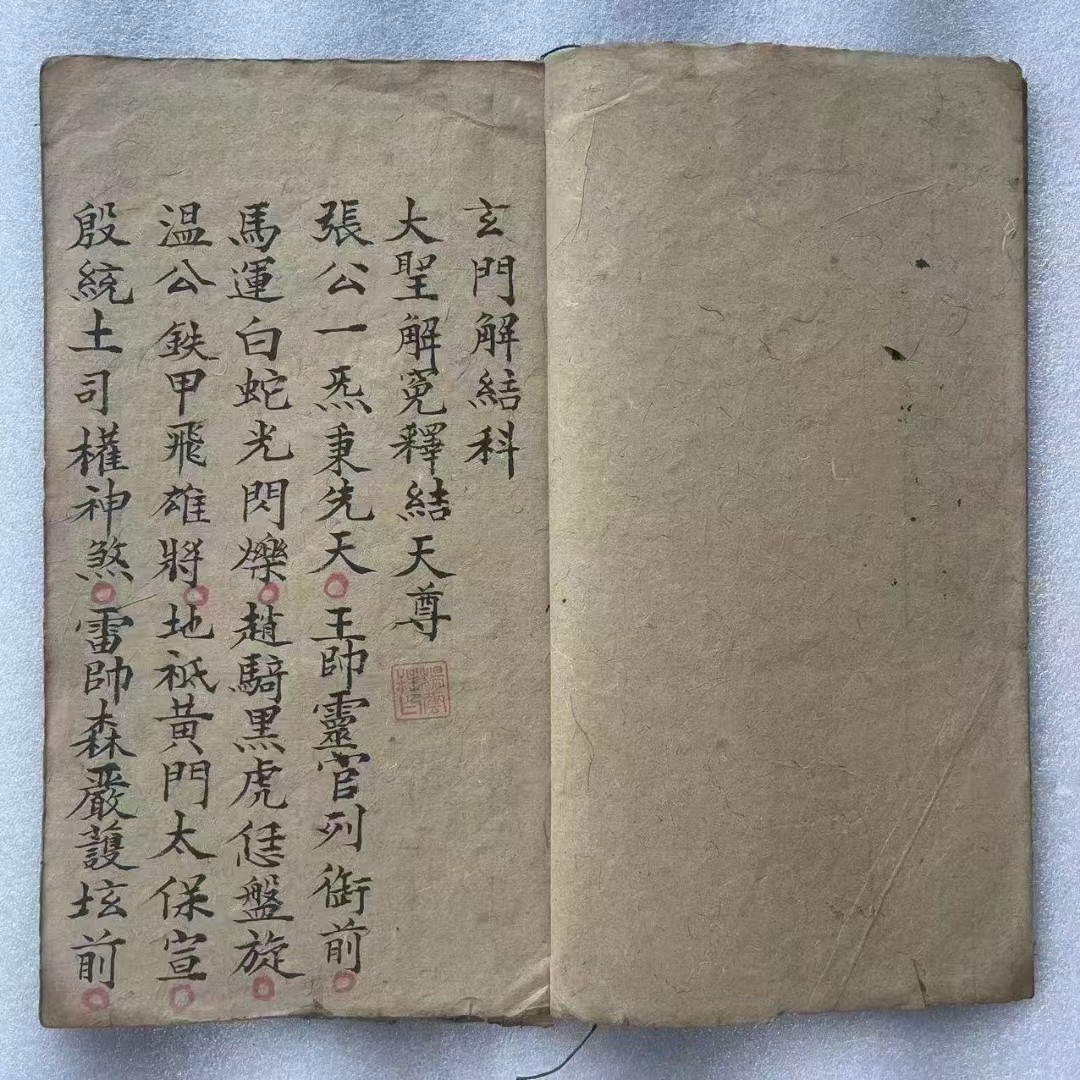 玄門解結科
大聖解冤釋結天尊
張公一炁秉先天王帥靈官列衙前
馬運白蛇光閃爍趙騎黑虎恁盤旋
温公鉄甲飛雄將地祇黃門太保宣
殷統土司權神煞雷帥森嚴護坛前